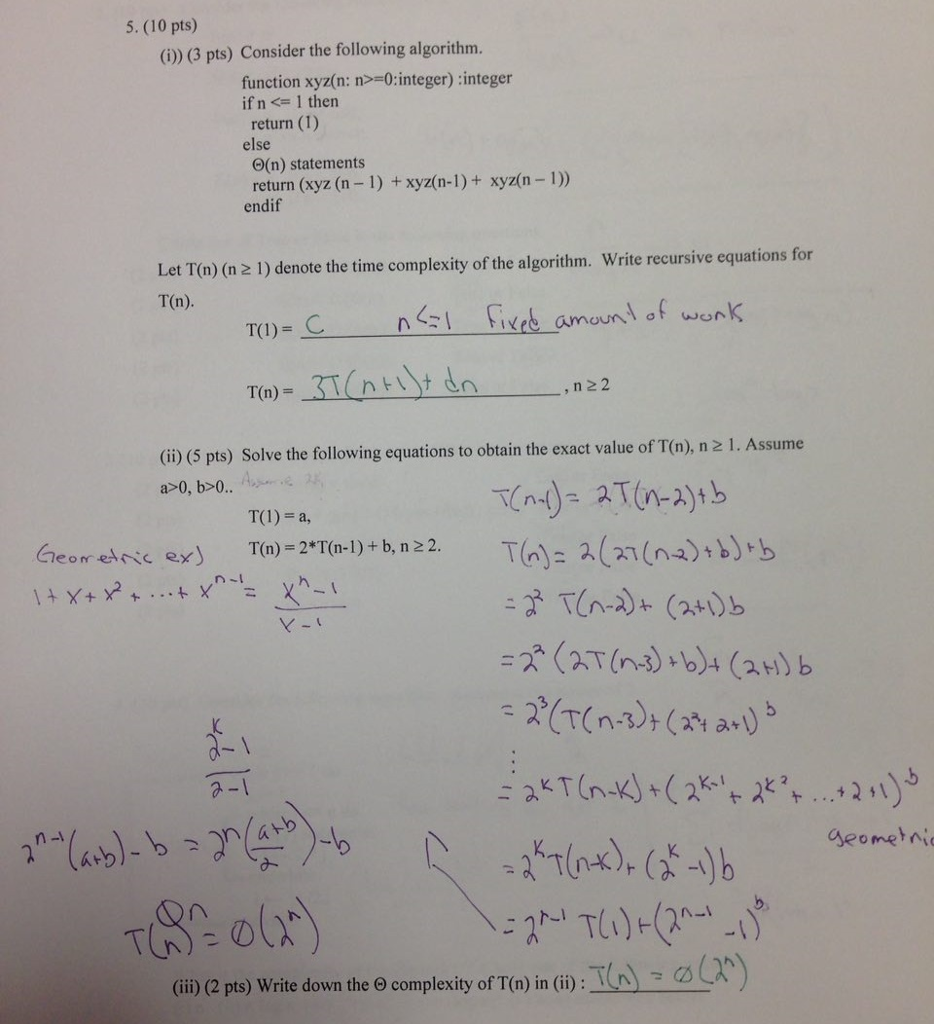 5. (10 pts)
(i)) (3 pts) Consider the following algorithm.
function xyz(n: n>=0:integer) :integer
if n <= 1 then
return (1)
else
Θ(n) statements
return (xyz (n – 1) + xyz(n-1) + xyz(n – 1))
endif
Let T(n) (n ≥ 1) denote the time complexity of the algorithm. Write recursive equations for
T(n).
T(1) = C n<=1 Fixed amount of work
T(n) = 3T(n+1)+ dn , n ≥ 2
(ii) (5 pts) Solve the following equations to obtain the exact value of T(n), n ≥ 1. Assume
a>0, b>0..
T(1) = a,
T(n) = 2*T(n-1) + b, n ≥ 2.
Geometric ex)
1+x+x²+...+x^n-1 = x^n-1
x-1
2^k-1
2-1
2^n-1(a+b)-b = 2^n(a+b/2)-b
T(n) = Θ(2^n)
T(n-1) = 2T(n-2)+b
T(n) = 2(2T(n-2)+b)+b
= 2² T(n-2)+ (2+1)b
= 2² (2T(n-3)+b)+(2+1)b
= 2³(T(n-3)+(2²+2+1)b
⋮
= 2^k T(n-k)+(2^k-1 + 2^k2 + ...+2+1)b
geometric
= 2^k T(n-k)+(2^k-1)b
= 2^n-1 T(1)+(2^n-1 -1)b
(iii) (2 pts) Write down the Θ complexity of T(n) in (ii) : T(n) = Θ(2^n)